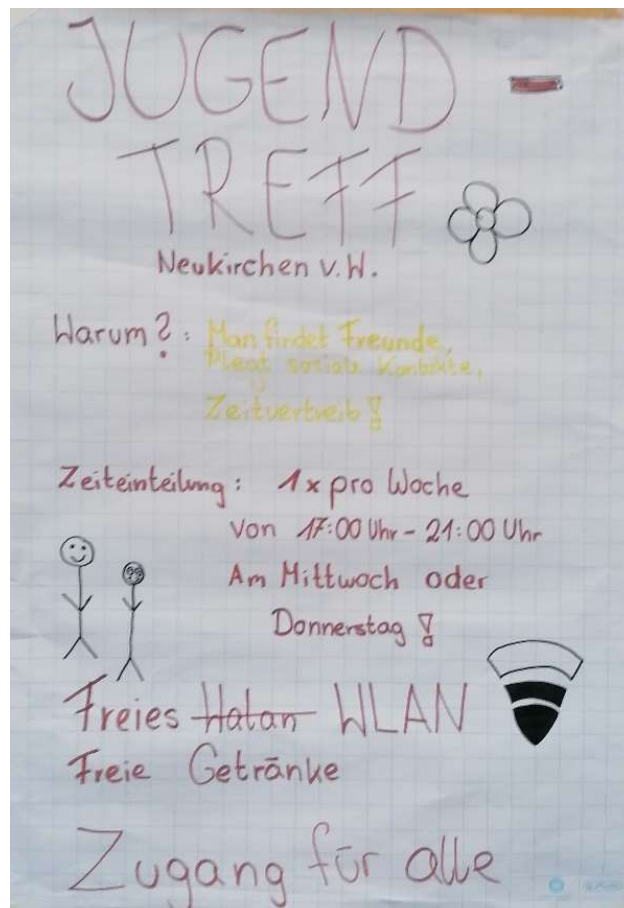 JUGEND -
TREFF
Neukirchen v.W.
Warum?: Man findet Freunde,
Pflegt soziale Kontakte,
Zeitvertreib!
Zeiteinteilung: 1x pro Woche
Von 17:00 Uhr - 21:00 Uhr
Am Mittwoch oder
Donnerstag!
Freies Hatan WLAN
Freie Getränke
Zugang für alle